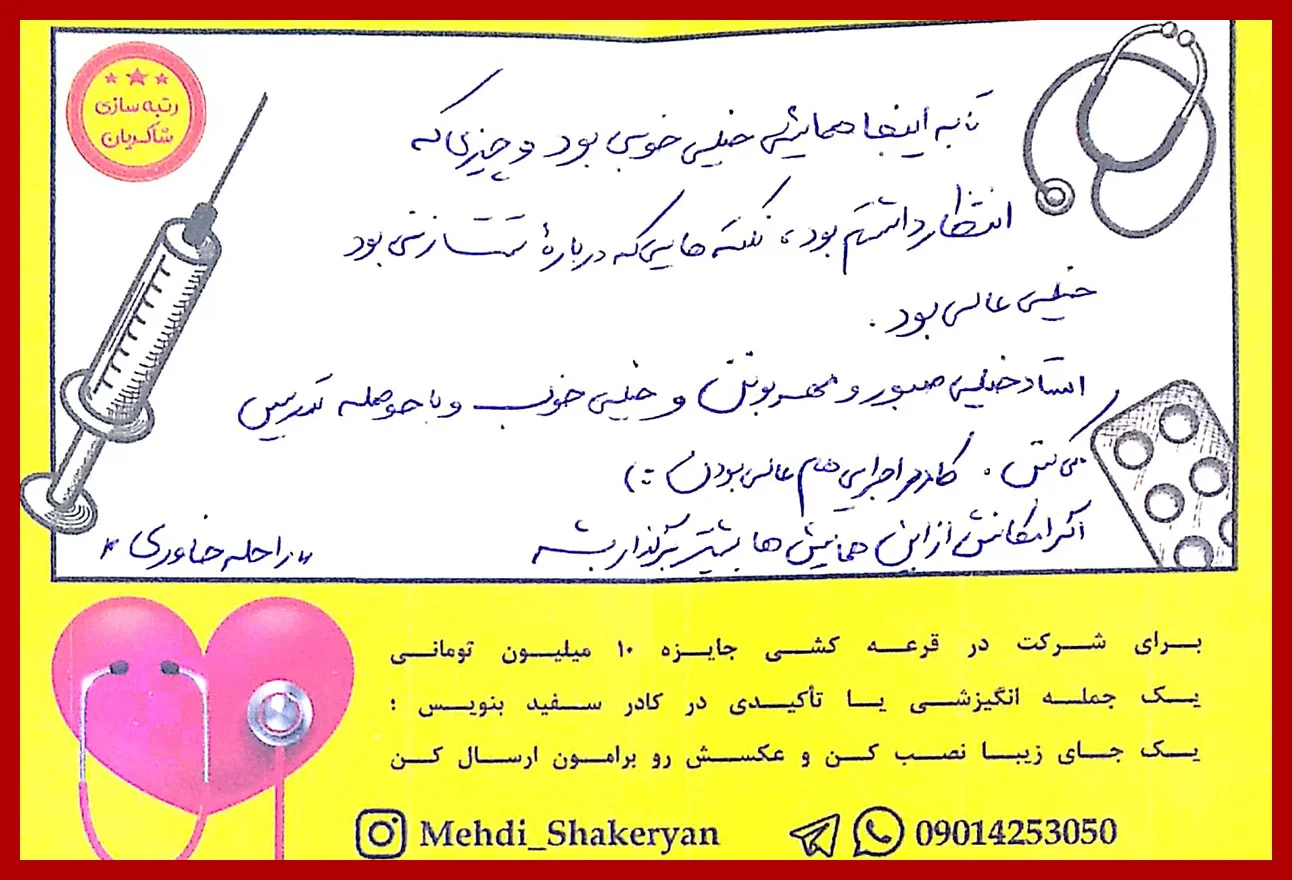 رتبه سازی
شاکریان
تا به اینجا همایش خیلی خوبی بود و چیزی که
انتظار داشتم بود، نکته هایی که درباره تست زنی بود
خیلی عالی بود.
استاد خیلی صبور و مهربونن و خیلی خوب و با حوصله تدریس
می کنن. کادر اجرایی هم عالی بودن :)
اگر امکانش از این همایش ها بیشتر برگذار بشه
راحله خاوری
بـرای شـرکت در قرعـه کشـی جایـزه ۱۰ میلیـون تومانـی
یـک جملـه انگیزشـی یـا تأکیـدی در کادر سـفید بنویـس ؛
یـک جـای زیبـا نصـب کـن و عکسـش رو برامـون ارسـال کـن
Mehdi_Shakeryan
09014253050